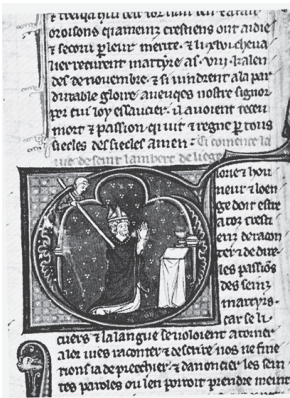 oroisons que mainz crestiens ont aidie
z secorz p̲ leur merite. z li .xv. cheva
lier recurent martyre as .viij. kalen
des de novembre. z si vindrent a la par
durable gloire aueqes nostre signor
por cui loy essaucier. il auoient receu
mort z passion. qui uit z regne p̲ touz
siecles des siecles amen: Ci comence la
uie de seint lambert de liege
loire z hon
neur z loen
ge doit estre
a toz cresti
enz de racon
ter z de dire
les passiõs
des seinz
martyrs.
car se li
cuers z la langue se voloient atorner
a lor uies raconter z descrire nos ne fine
rions ia de preechier. z danoncier les sein
tes paroles ou len porroit prendre meint